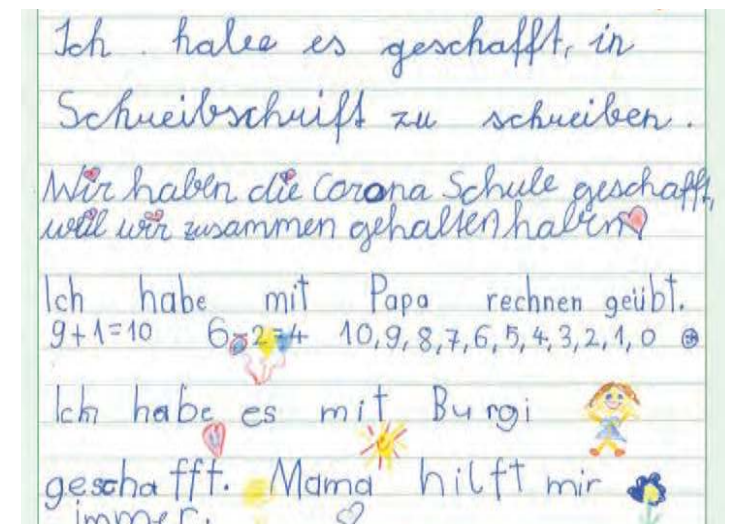 Ich habe es geschafft, in
Schreibschrift zu schreiben.
Wir haben die Corona Schule geschafft,
weil wir zusammen gehalten haben
Ich habe mit Papa rechnen geübt.
9+1=10 6-2=4 10,9,8,7,6,5,4,3,2,1,0
Ich habe es mit Burgi
geschafft. Mama hilft mir
immer.